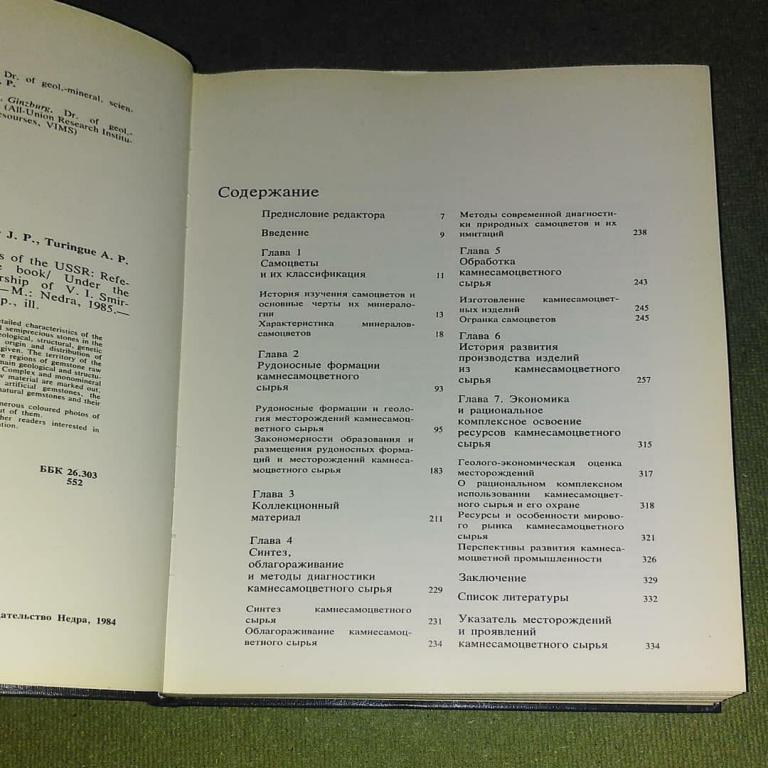 Dr. of geol.-mineral. scien-
P.
Ginzburg, Dr. of geol.-
(All-Union Research Institu-
esourses, VIMS)
J. P., Turingue A. P.
s of the USSR: Refe-
e book/ Under the
rship of V. I. Smir-
—M.: Nedra, 1985.—
p., ill.
tailed characteristics of the
d semiprecious stones in the
ological, structural, genetic
origin and distribution of
given. The territory of the
re regions of gemstone raw
main geological and structu-
Complex and monomineral
w material are marked out.
artificial gemstones, the
natural gemstones and their
nerous coloured photos of
ut of them.
her readers interested in
ation.
ББК 26.303
552
дательство Недра, 1984
Содержание
Предисловие редактора 7
Введение 9
Глава 1
Самоцветы
и их классификация 11
История изучения самоцветов и
основные черты их минерало-
гии 13
Характеристика минералов-
самоцветов 18
Глава 2
Рудоносные формации
камнесамоцветного
сырья 93
Рудоносные формации и геоло-
гия месторождений камнесамоц-
ветного сырья 95
Закономерности образования и
размещения рудоносных форма-
ций и месторождений камнеса-
моцветного сырья 183
Глава 3
Коллекционный
материал 211
Глава 4
Синтез,
облагораживание
и методы диагностики
камнесамоцветного сырья 229
Синтез камнесамоцветного
сырья 231
Облагораживание камнесамоц-
ветного сырья 234
Методы современной диагности-
ки природных самоцветов и их
имитаций 238
Глава 5
Обработка
камнесамоцветного
сырья 243
Изготовление камнесамоцвет-
ных изделий 245
Огранка самоцветов 245
Глава 6
История развития
производства изделий
из камнесамоцветного
сырья 257
Глава 7. Экономика
и рациональное
комплексное освоение
ресурсов камнесамоцветного
сырья 315
Геолого-экономическая оценка
месторождений 317
О рациональном комплексном
использовании камнесамоцвет-
ного сырья и его охране 318
Ресурсы и особенности мирово-
го рынка камнесамоцветного
сырья 321
Перспективы развития камнеса-
моцветной промышленности 326
Заключение 329
Список литературы 332
Указатель месторождений
и проявлений
камнесамоцветного сырья 334